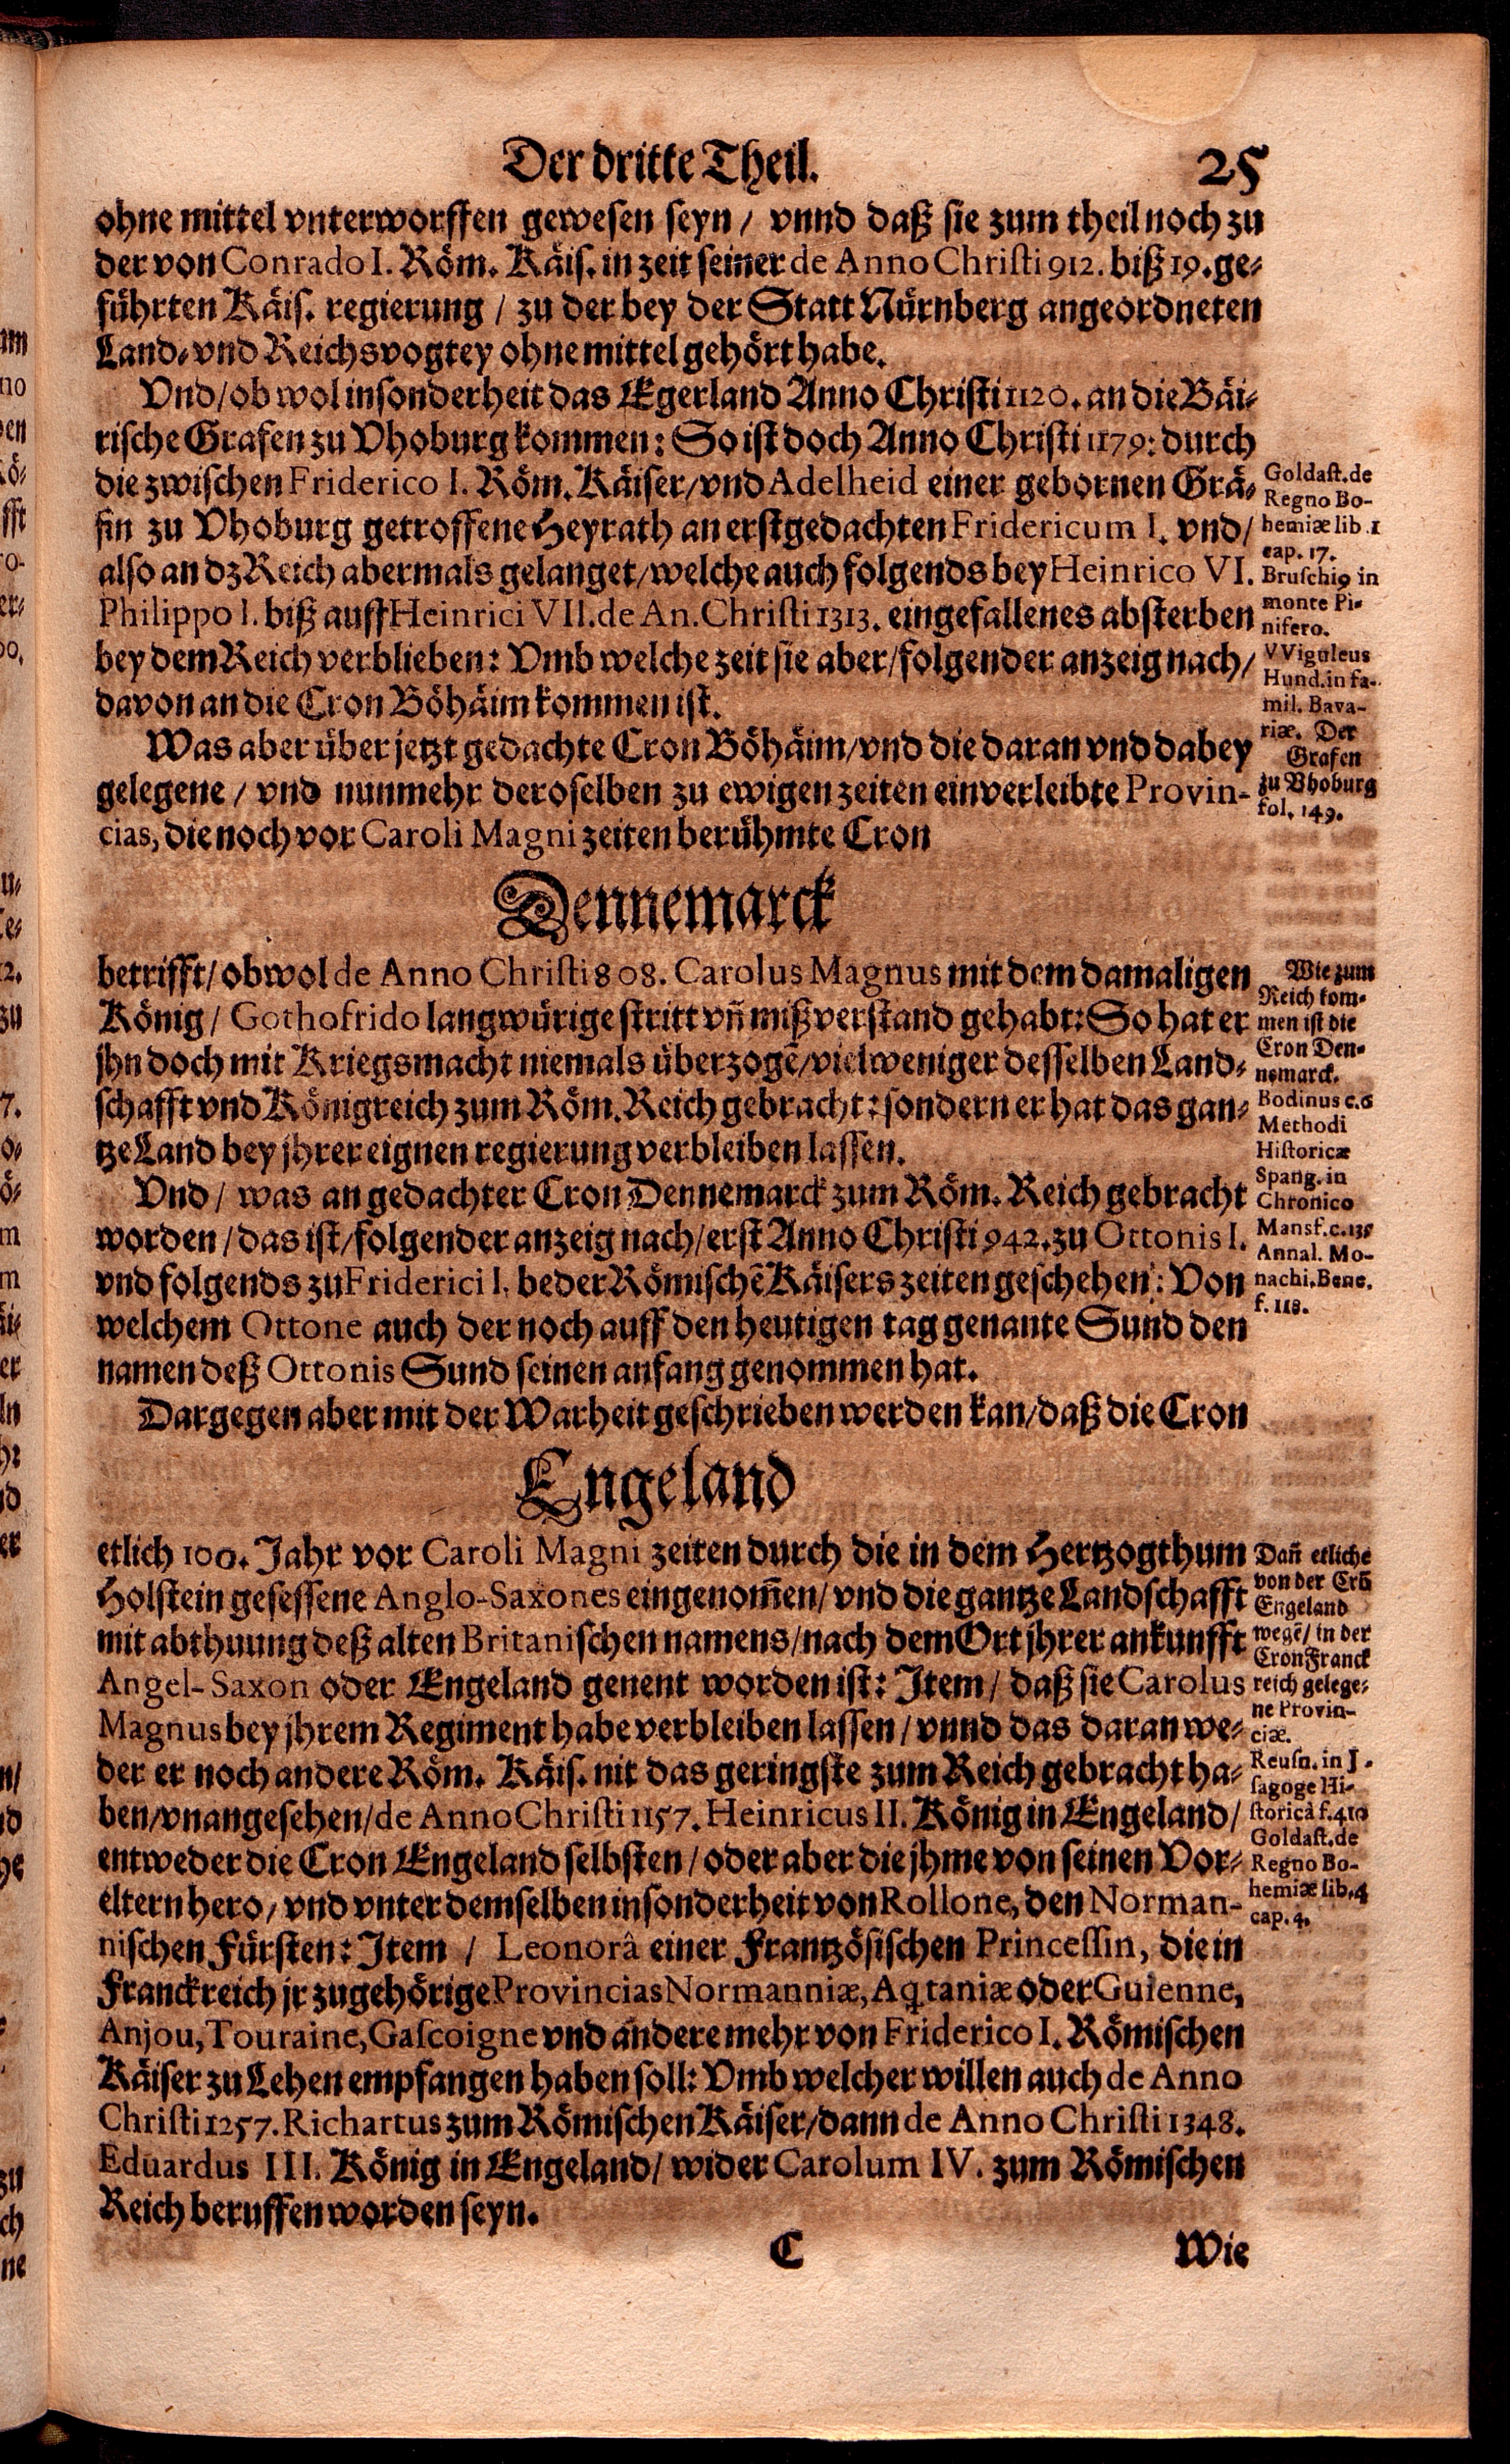 Der dritte Theil. 25
ohne mittel vnterworffen gewesen seyn / vnnd daß sie zum theil noch zu
der von Conrado I. Röm. Käis. in zeit seiner de Anno Christi 912. biß 19. ge-
führten Käis. regierung / zu der bey der Statt Nürnberg angeordneten
Land- vnd Reichsvogtey ohne mittel gehört habe.
Vnd / ob wol insonderheit das Egerland Anno Christi 1120. an die Bäi-
rische Grafen zu Vhoburg kommen: So ist doch Anno Christi 1179: durch
die zwischen Friderico I. Röm. Käiser / vnd Adelheid einer gebornen Grä-
fin zu Vhoburg getroffene Heyrath an erstgedachten Fridericum I. vnd /
also an dz Reich abermals gelanget / welche auch folgends bey Heinrico VI.
Philippo I. biß auff Heinrici VII. de An. Christi 1313. eingefallenes absterben
bey dem Reich verblieben: Vmb welche zeit sie aber / folgender anzeig nach /
davon an die Cron Böhäim kommen ist.
Goldast. de
Regno Bo-
hemiæ lib. 1
cap. 17.
Bruschi9 in
monte Pi-
nifero.
VViguleus
Hund. in fa-
mil. Bava-
riæ. Der
Grafen
zu Vhoburg
fol. 149.
Was aber über jetzt gedachte Cron Böhäim / vnd die daran vnd dabey
gelegene / vnd nunmehr deroselben zu ewigen zeiten einverleibte Provin-
cias, die noch vor Caroli Magni zeiten berühmte Cron
Dennemarck
betrifft / obwol de Anno Christi 808. Carolus Magnus mit dem damaligen
König / Gothofrido langwürige stritt vñ mißverstand gehabt: So hat er
jhn doch mit Kriegsmacht niemals überzogẽ / viel weniger desselben Land-
schafft vnd Königreich zum Röm. Reich gebracht: sondern er hat das gan-
tze Land bey jhrer eignen regierung verbleiben lassen.
Vnd / was an gedachter Cron Dennemarck zum Röm. Reich gebracht
worden / das ist / folgender anzeig nach / erst Anno Christi 942. zu Ottonis I.
vnd folgends zu Friderici I. beder Römischẽ Käisers zeiten geschehen: Von
welchem Ottone auch der noch auff den heutigen tag genante Sund den
namen deß Ottonis Sund seinen anfang genommen hat.
Wie zum
Reich kom-
men ist die
Cron Den-
nemarck.
Bodinus c. 6
Methodi
Historicæ
Spang. in
Chronico
Mansf. c. 135
Annal. Mo-
nachi. Bene.
f. 118.
Dargegen aber mit der Warheit geschrieben werden kan / daß die Cron
Engeland
etlich 100. Jahr vor Caroli Magni zeiten durch die in dem Hertzogthum
Holstein gesessene Anglo-Saxones eingenom̃en / vnd die gantze Landschafft
mit abthuung deß alten Britanischen namens / nach dem Ort jhrer ankunfft
Angel-Saxon oder Engeland genent worden ist: Item / daß sie Carolus
Magnus bey jhrem Regiment habe verbleiben lassen / vnnd das daran we-
der er noch andere Röm. Käis. nit das geringste zum Reich gebracht ha-
ben / vnangesehen / de Anno Christi 1157. Heinricus II. König in Engeland /
entweder die Cron Engeland selbsten / oder aber die jhme von seinen Vor-
eltern hero / vnd vnter demselben insonderheit von Rollone, den Norman-
nischen Fürsten: Item / Leonorâ einer Frantzösischen Princessin, die in
Franckreich jr zugehörige Provincias Normanniæ, Aq̃taniæ oder Guienne,
Anjou, Touraine, Gascoigne vnd andere mehr von Friderico I. Römischen
Käiser zu Lehen empfangen haben soll: Vmb welcher willen auch de Anno
Christi 1257. Richartus zum Römischen Käiser / dann de Anno Christi 1348.
Eduardus III. König in Engeland / wider Carolum IV. zum Römischen
Reich beruffen worden seyn.
Dañ etliche
von der Crõ
Engeland
wegẽ / in der
Cron Franck
reich gelege-
ne Provin-
ciæ.
Reusn. in J-
sagoge Hi-
storicâ f. 410
Goldast. de
Regno Bo-
hemiæ lib. 4
cap. 4.
C Wie